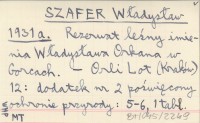 SZAFER Władysław
1931a. Rezerwat leśny imie-
nia Władysława Orkana w
Gorcach. Orli Lot (Kraków)
12: dodatek nr 2 poświęcony
ochronie przyrody: 5-6, 1 tabl.
MT